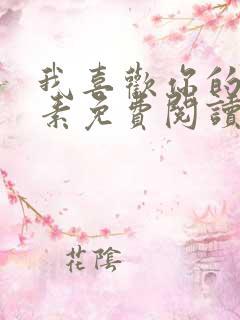 我喜歡你的
素免費閱讀
花陰